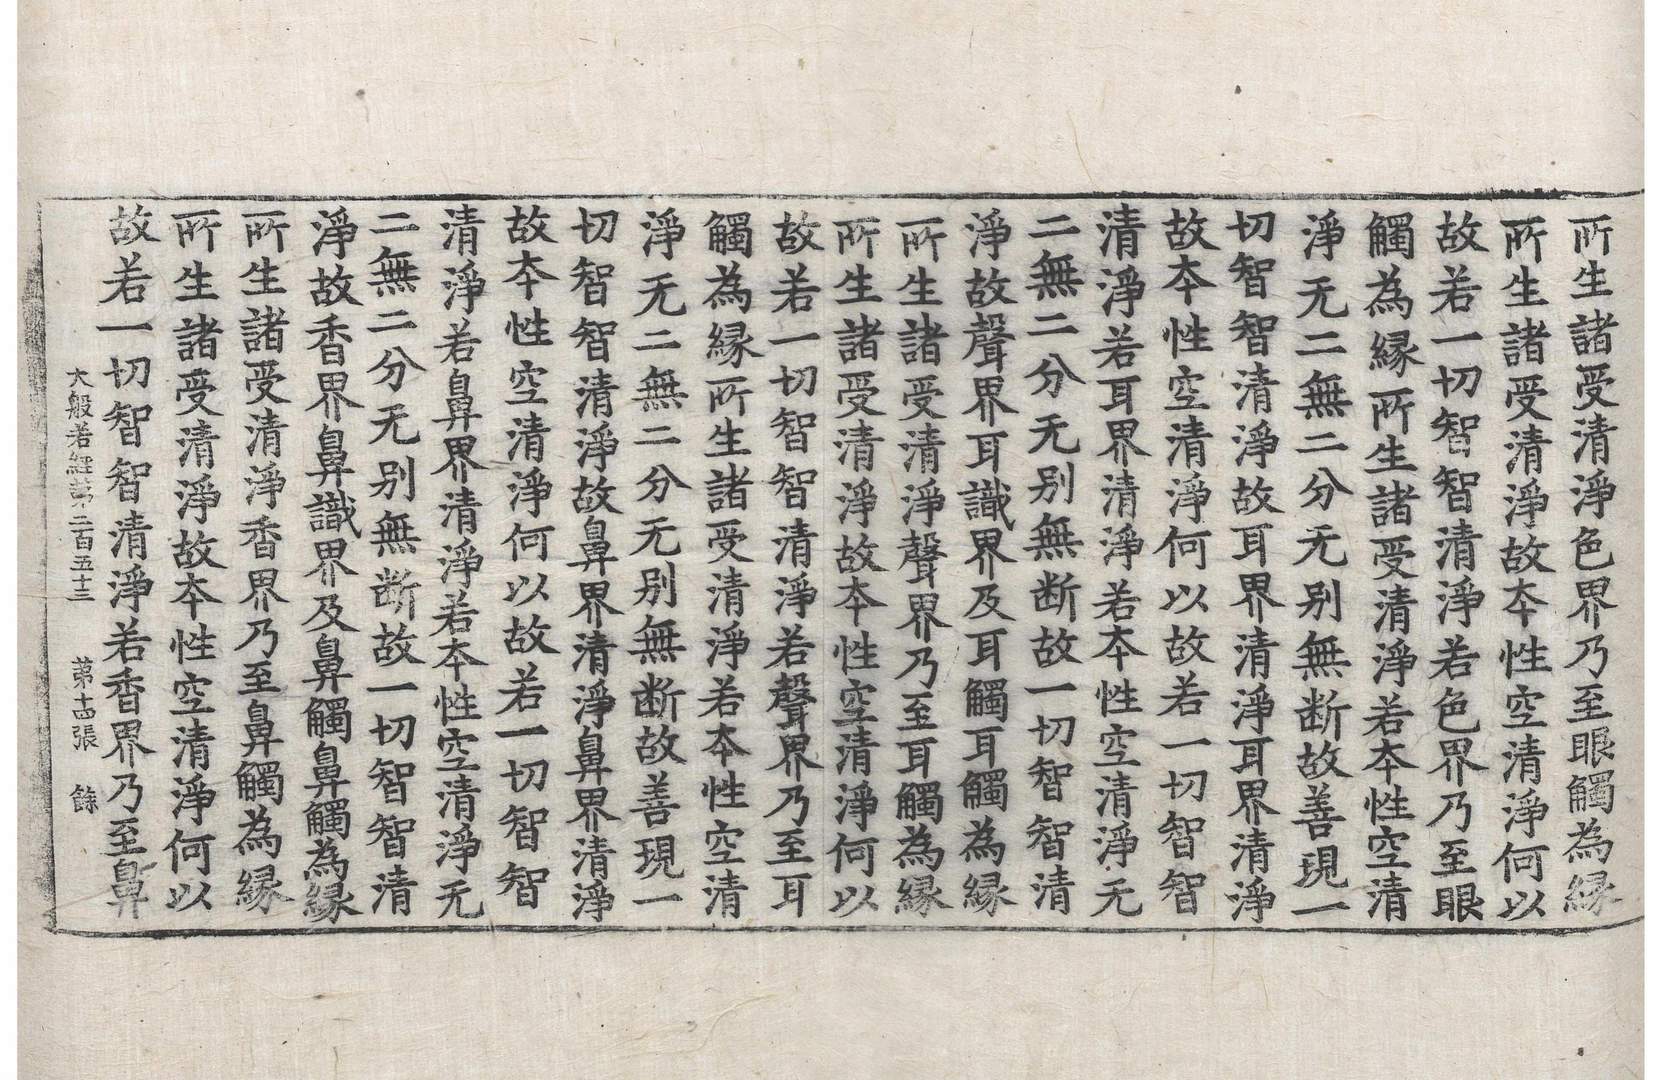 所生諸受清淨色界乃至眼觸為緣
所生諸受清淨故本性空清淨何以
故若一切智智清淨若色界乃至眼
觸為緣所生諸受清淨若本性空清
淨无二無二分无别無断故善現一
切智智清淨故耳界清淨耳界清淨
故本性空清淨何以故若一切智智
清淨若耳界清淨若本性空清淨无
二無二分无别無断故一切智智清
淨故聲界耳識界及耳觸耳觸為緣
所生諸受清淨聲界乃至耳觸為緣
所生諸受清淨故本性空清淨何以
故若一切智智清淨若聲界乃至耳
觸為緣所生諸受清淨若本性空清
淨无二無二分无别無断故善現一
切智智清淨故鼻界清淨鼻界清淨
故本性空清淨何以故若一切智智
清淨若鼻界清淨若本性空清淨无
二無二分无别無断故一切智智清
淨故香界鼻識界及鼻觸鼻觸為緣
所生諸受清淨香界乃至鼻觸為緣
所生諸受清淨故本性空清淨何以
故若一切智智清淨若香界乃至鼻
大般若經第二百五十三 第十四張 餘